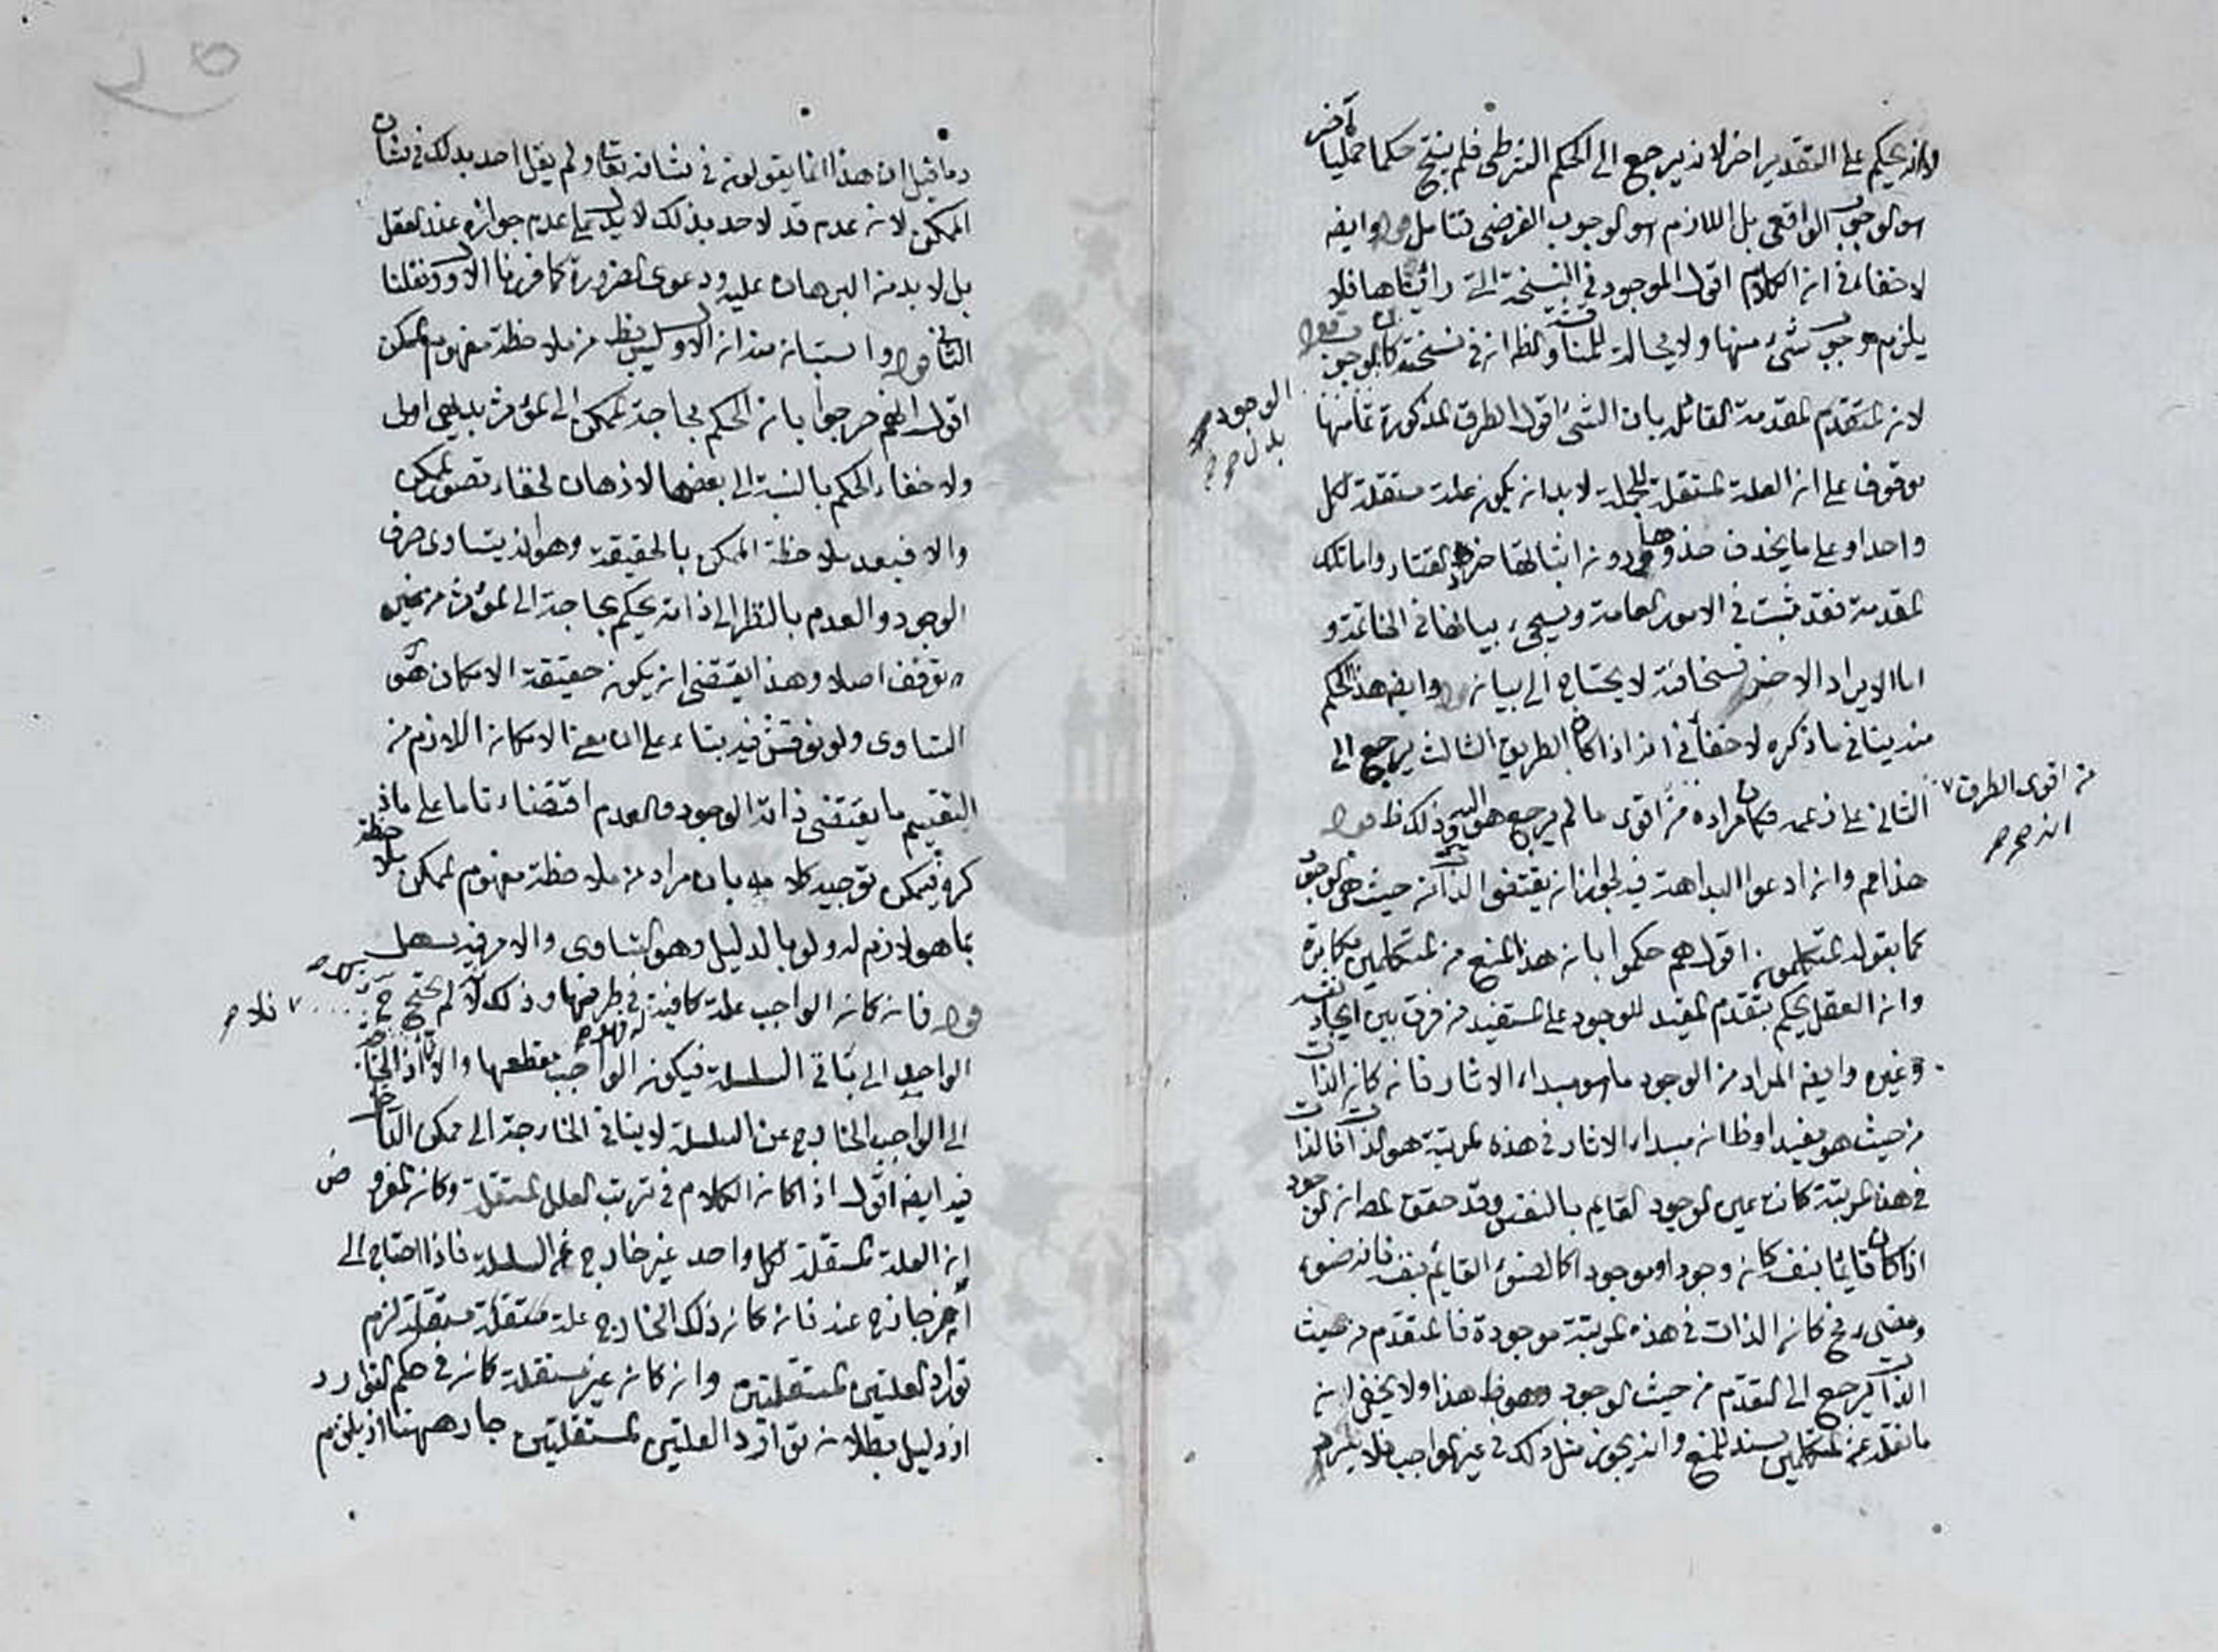 لانه يحكم على التقدير اخر لانه يرجع الى الحكم الشرطى فلم ينتج حكما حمليا آخر
هو الوجوب الواقعى بل اللازم هو الوجوب الفرضى فتامل قوله وايضه
لا خفاء فى انه الكلام اقول الموجود فى النسخة التى رائيناها فلا
يلزم وجوب شئ منها ولا محالة للمناقشة والظ انه فى نسخته كان الوجوب
الوجود
بدل صح
لانه المتقدم المقدمة القائل بان الشئ اقول الطرق المذكورة ثمانها
موقوف على انه العلة المستقلة للجملة لابد انه يكونه علة مستقلة لكل
واحد او على ما يحذف حذوها ودونه اثباتها خرط القتاد واما تلك
المقدمة فقد ثبت فى الامور العامة وسيجئ بيانها فى الخاتمة و
اما الايراد الاخير فسخافته لا يحتاج الى بيانه قوله وايضه هذا الحكم
منه ينافى ما ذكره لا خفأ فى انه اذا كان الطريق الثالث يرجع الى
الثانى على زعمه فكان مراده من اقوى ما لم يرجع هو اليه وذلك ظ قوله
من اقوى الطرق
انه صح
هذا مم وانه ادعوا البداهة فيه لجواز انه يقتضى الذات من حيث هى الوجود
كما يقوله المتكلمونه اقول هم حكموا بانه هذا المنع من المتكلمين مكابرة
وانه العقل يحكم بتقدم المفيد للوجود على المستفيد من فرق بين ايجاد نفسه
وغيره وايضه المراد من الوجود ما هو مبداء الاثار فانه كانه الذات
من حيث هو مفيدا وظ انه مبداء الاثار فى هذه المرتبة هو الذات فالذات
فى هذه المرتبة كان عين الوجود القايم بالنفس وقد حقق المص انه الوجود
اذا كان قايما بنفسه كانه وجودا وموجودا كالضوء القائم بنفسه فانه ضوء
ومضئ فح كانه الذات فى هذه المرتبة موجودة فالمتقدم من حيث
الذات يرجع الى التقدم من حيث الوجود وهو ظ هذا ولا يخفى انه
ما نقله عن المتكلمين سند للمنع وانه يجوز مثل ذلك فى غير الواجب فلا يلزم
وما قيل ان هذا انما يقولونه فى شانه تعالى ولم يقل احد بذلك فى شان
الممكن لانه عدم قول احد بذلك لا يدل على عدم جوازه عند العقل
بل لابد من البرهان عليه ودعوى الضرورة كما قررنا الاول ونقلنا
الثانى قوله واستبانه منه انه الاول ليس بنظر من ملاحظة مفهوم الممكن
اقول انهم صرحوا بانه الحكم بحاجة الممكن الى المؤثر بديهى اولى
ولا خفاء الحكم بالنسبة الى بعض الاذهان لخفاء تصور الممكن
والا فبعد ملاحظة الممكن بالحقيقة وهو الذى يتساوى طرف
الوجود والعدم بالنظر الى ذاته يحكم بحاجة الى المؤثر من غير
توقف اصلا وهذا يقتضى انه يكونه حقيقة الامكان هو
التساوى ولو نوقش فيه بناء على ان معنى الامكانه اللازم من
التقسيم ما يقتضى ذاته الوجود والعدم اقتضاء تاما على ما ذ
كره فيمكن توجيه كلامه بان مراده من ملاحظة مفهوم الممكن ملاحظة
ما هو لازم له ولو بالدليل وهو التساوى والامر فيه سهل
قوله فانه كانه الواجب علة كافية فى طرفها وذلك لانه لم يحتج ح
فلا صح
الواحد الى باقى السلسلة فيكونه الواجب مقطعها والا اذ الحاجة
الى الواجب الخارج عن السلسلة لا ينافى الخارجة الى ممكن
فيه ايضه اقول اذا كانه الكلام فى ترتب العلل المستقلة وكانه المفروض
انه العلة المستقلة لكل واحد غير خارج عن السلسلة فاذا احتاج الى
امر خارج عنه فانه كانه ذلك الخارج علة مستقلة لزم
توارد العلتين المستقلتين وانه كانه غير مستقلة كانه فى حكم التوارد
اذ دليل بطلانه توارد العلتين المستقلتين جار ههنا اذ يلزم